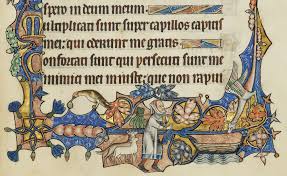 spero in deum meum
Multiplicati sunt super capillos capitis
mei: qui oderunt me gratis
Confortati sunt qui persecuti sunt me
inimici mei iniuste: que non rapui